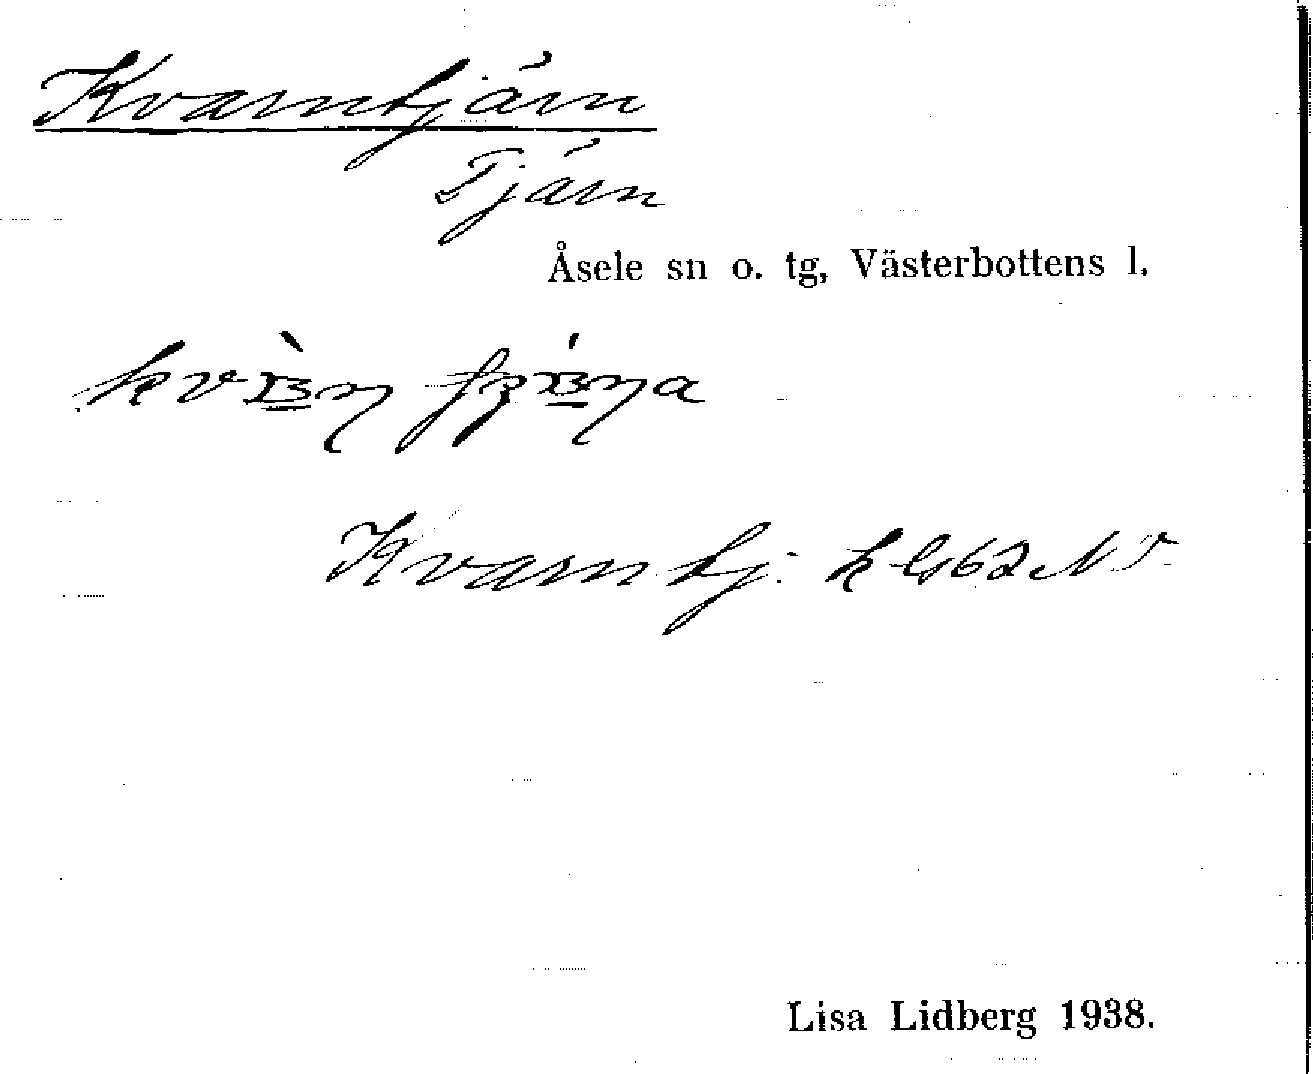 Kvarntjärn
Tjärn
Åsele sn o. tg, Västerbottens l.
Kvarntj.
Lisa Lidberg 1938.